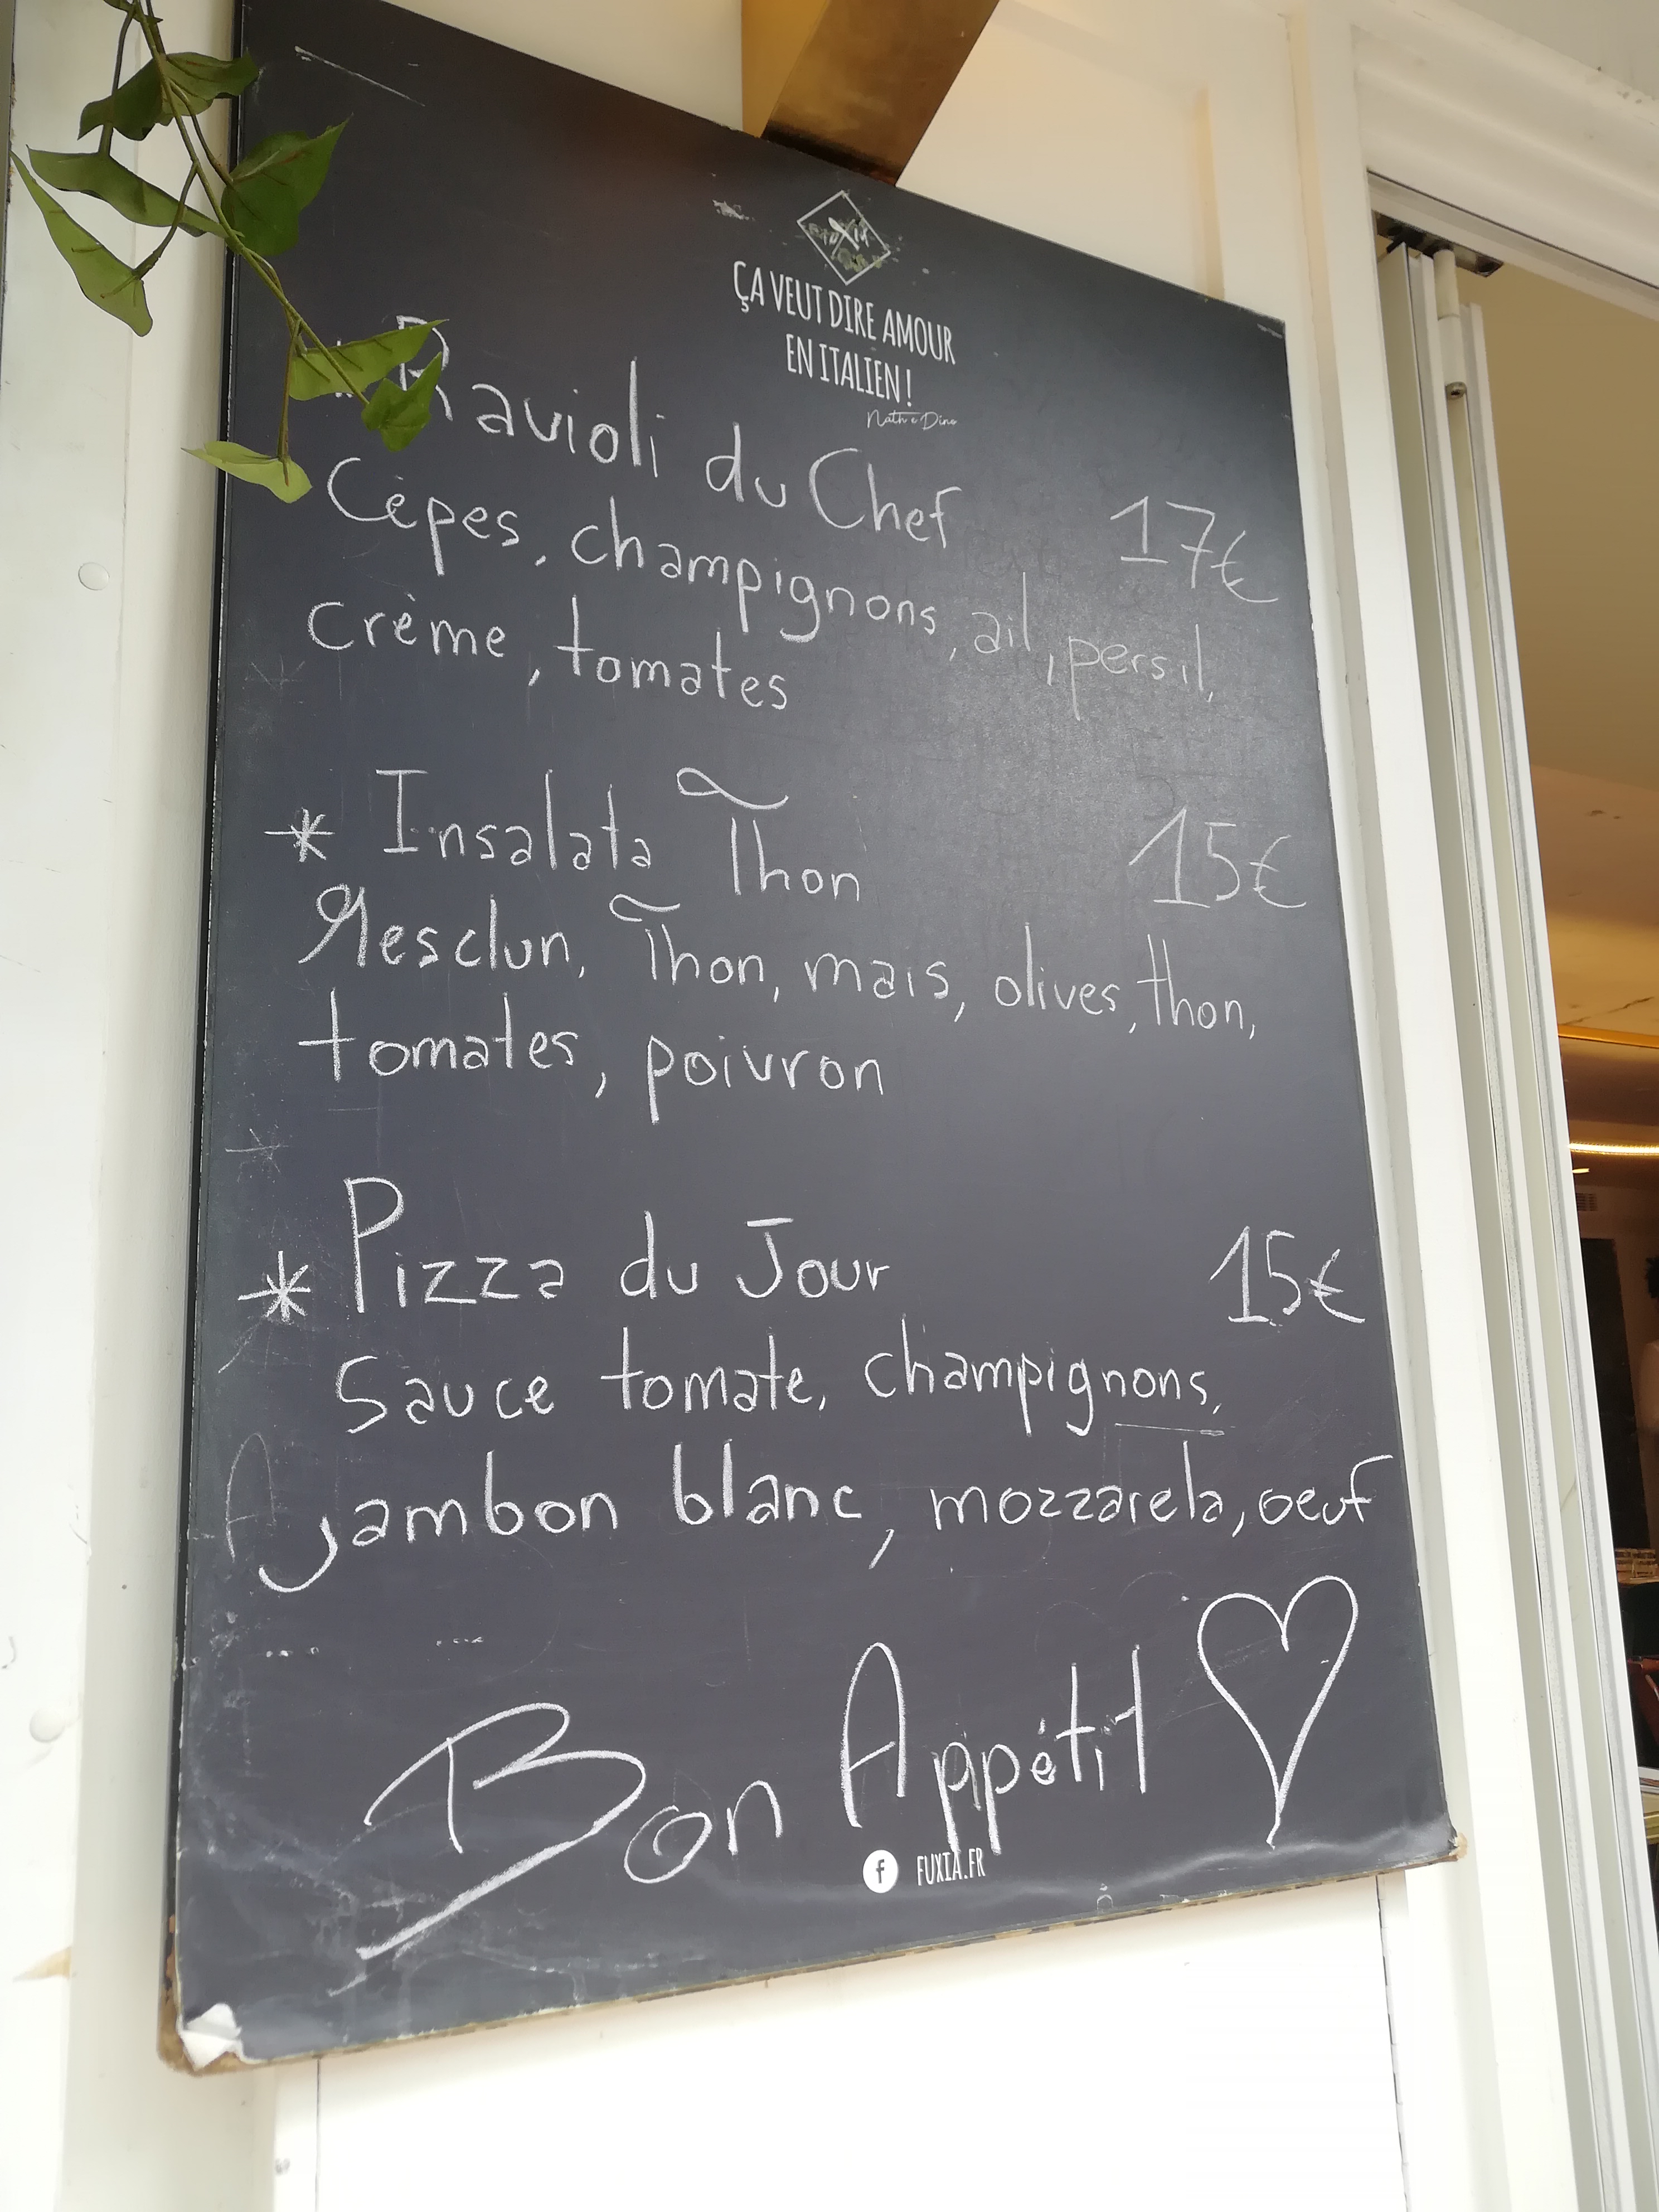 ÇA VEUT DIRE AMOUR
EN ITALIEN !
Nath e Dino
* Ravioli du Chef 17€
Cèpes, champignons, ail, persil,
crème, tomates
* Insalata Thon 15€
Mesclun, Thon, mais, olives, thon,
tomates, poivron
* Pizza du Jour 15€
Sauce tomate, champignons,
jambon blanc, mozzarela, oeuf
Bon Appétit
f FUXIA.FR